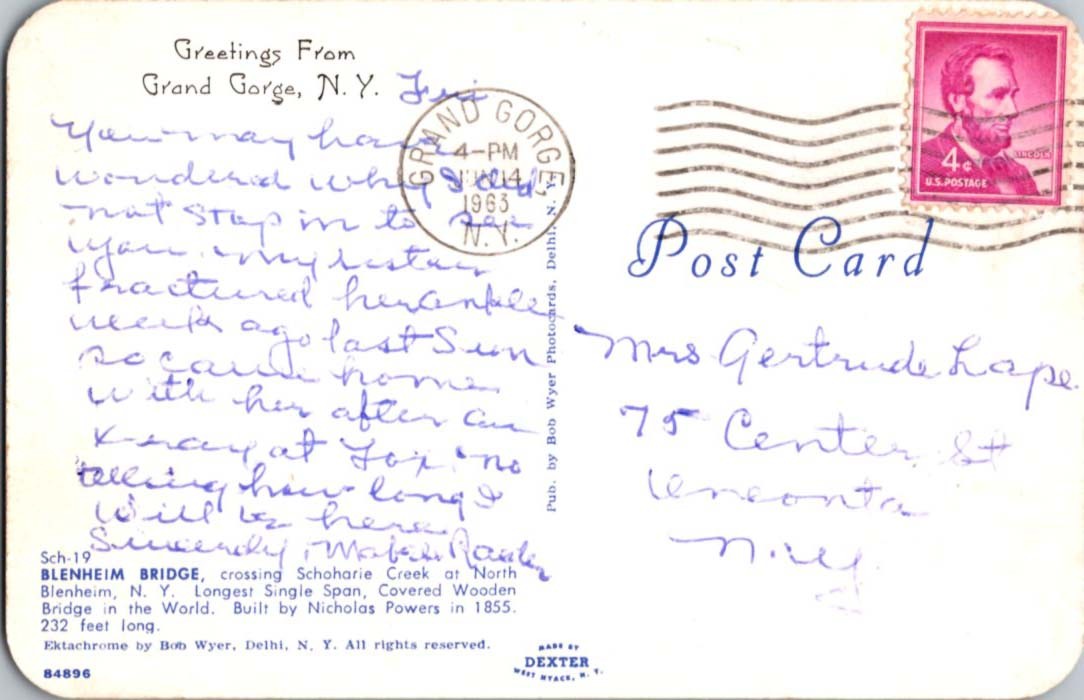 Greetings From
Grand Gorge, N.Y.
Fri
You may have
wondered why I did
not stop in to see
you. my sister
fractured her ankle
weeks ago last Sun
so came home
with her after an
x-ray at Fox. no
telling how long I
will be here
Sincerely, Mabel
Sch-19
BLENHEIM BRIDGE, crossing Schoharie Creek at North
Blenheim, N. Y. Longest Single Span, Covered Wooden
Bridge in the World. Built by Nicholas Powers in 1855.
232 feet long.
Ektachrome by Bob Wyer, Delhi, N. Y. All rights reserved.
84896
Pub. by Bob Wyer Photocards, Delhi, N. Y.
MADE BY
DEXTER
WEST NYACK, N. Y.
GRAND GORGE,
4-PM
JUN 14
1963
N.Y.
LINCOLN
4¢
U.S. POSTAGE
Post Card
Mrs Gertrude Lape
75 Center St
Oneonta
N.Y.